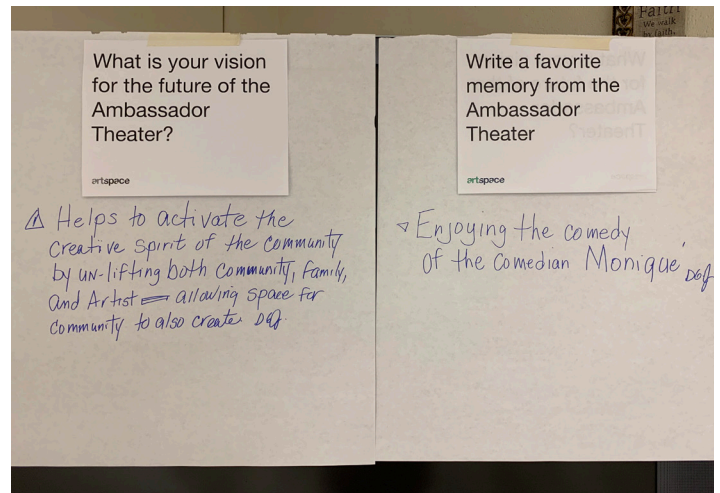 What is your vision
for the future of the
Ambassador
Theater?
artspace
Helps to activate the
creative spirit of the community
by un-lifting both community, family,
and Artist — allowing space for
community to also create
Write a favorite
memory from the
Ambassador
Theater
artspace
Enjoying the comedy
of the comedian Monique
Faith
We walk
by faith.